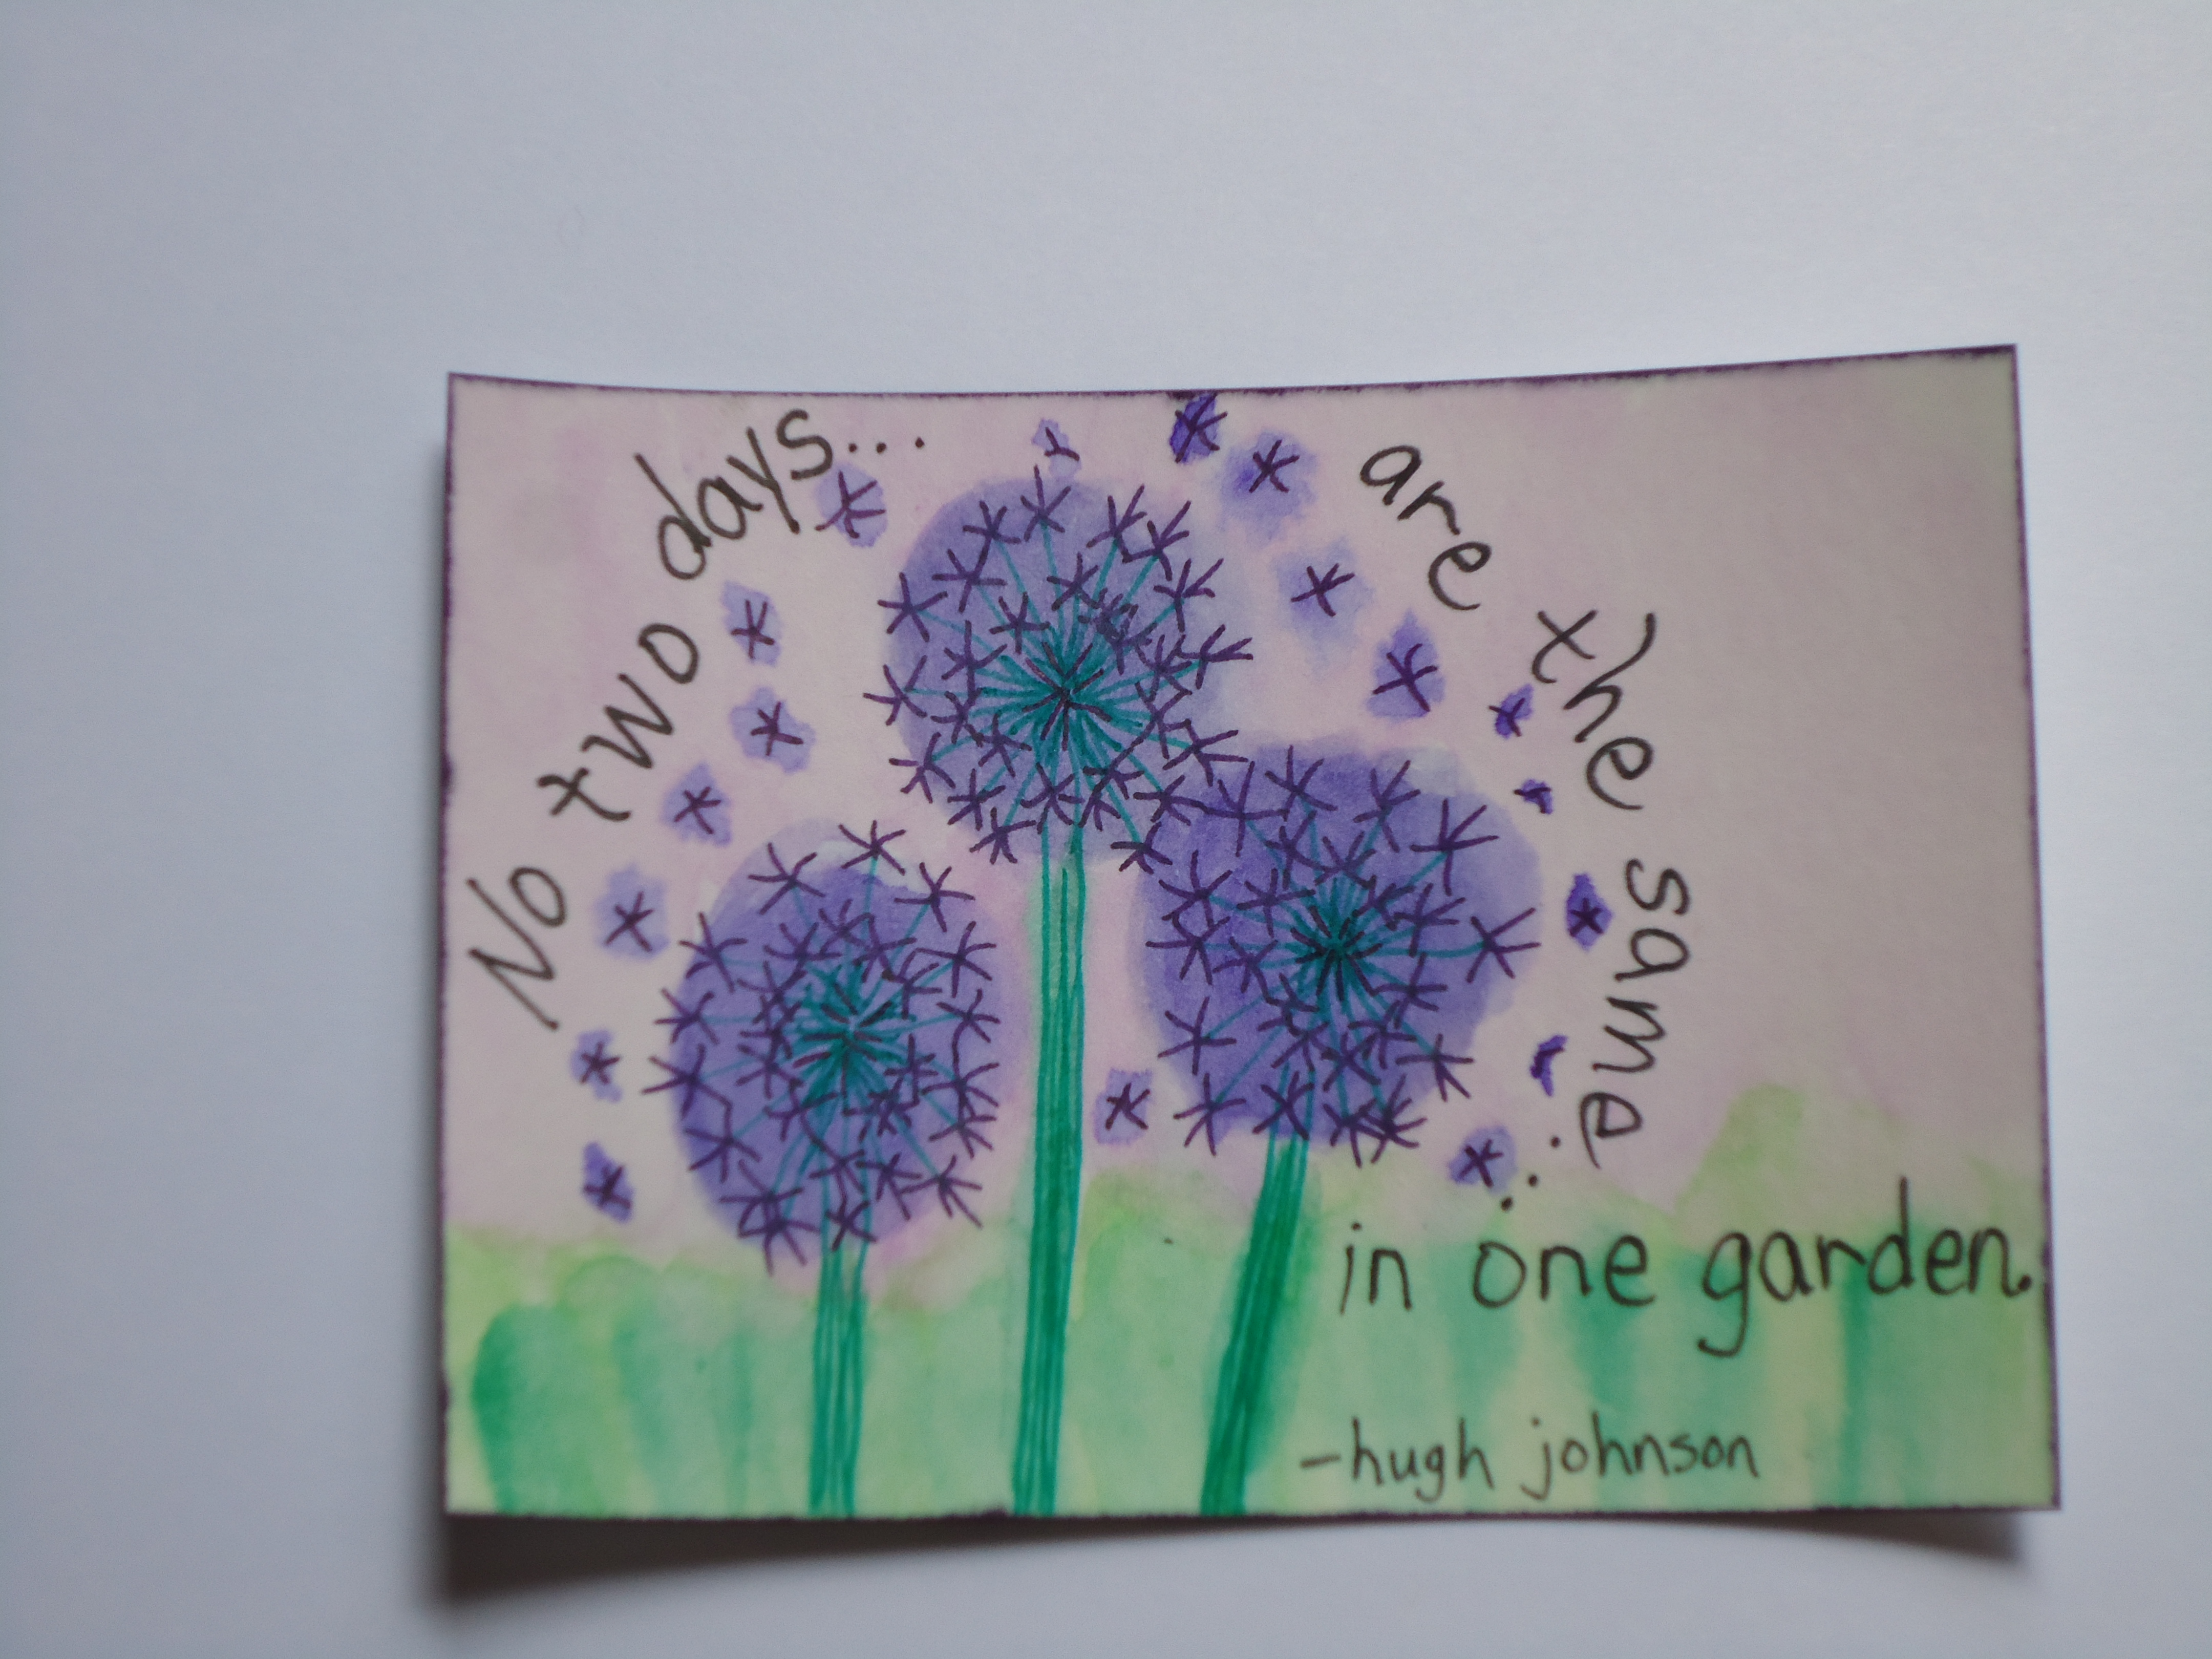 No two days...
are the same...
in one garden.
-hugh johnson